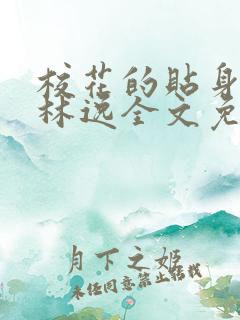 校花的贴身
林逸全文免
月下之姬
未经同意禁止转载